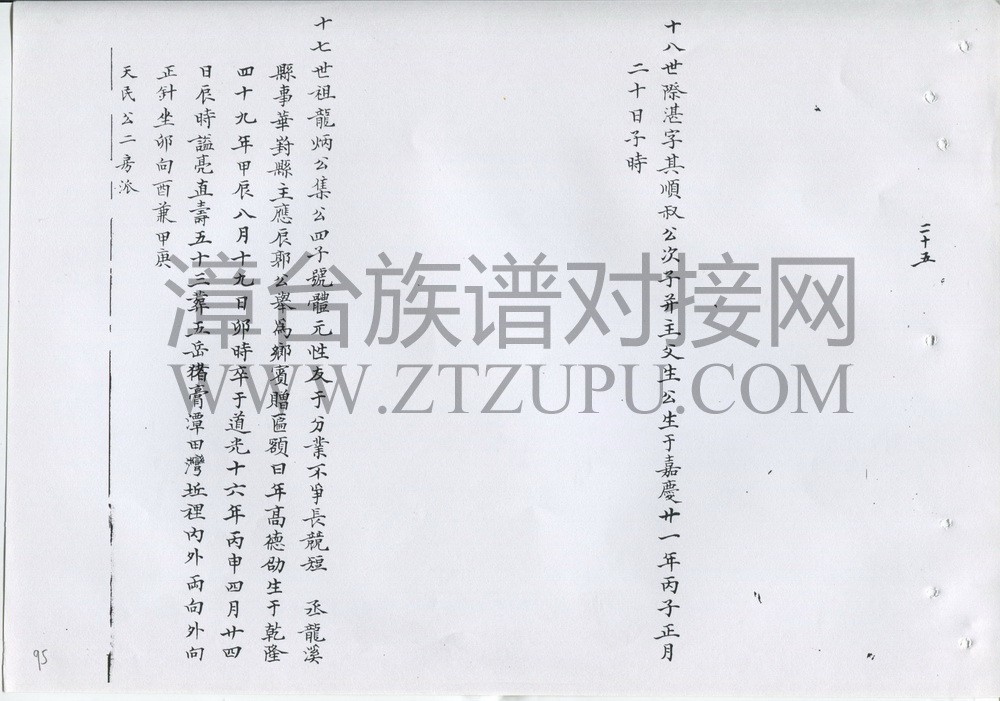 二十五
十八世際湛字其順叔公次子并主父生公生于嘉慶廿一年丙子正月
二十日子時
十七世祖龍炳公集公四子號體元性友于分業不爭長競短 丞龍溪
縣事華對縣主應辰郭公舉為鄉賓贈匾額曰年高德劭生于乾隆
四十九年甲辰八月十九日卯時卒于道光十六年丙申四月廿四
日辰時謚亮直壽五十三葬五岳豬膏潭田灣坵裡內外兩向外向
正針坐卯向酉兼甲庚
天民公二房派
漳台族谱对接网
WWW.ZTZUPU.COM
95